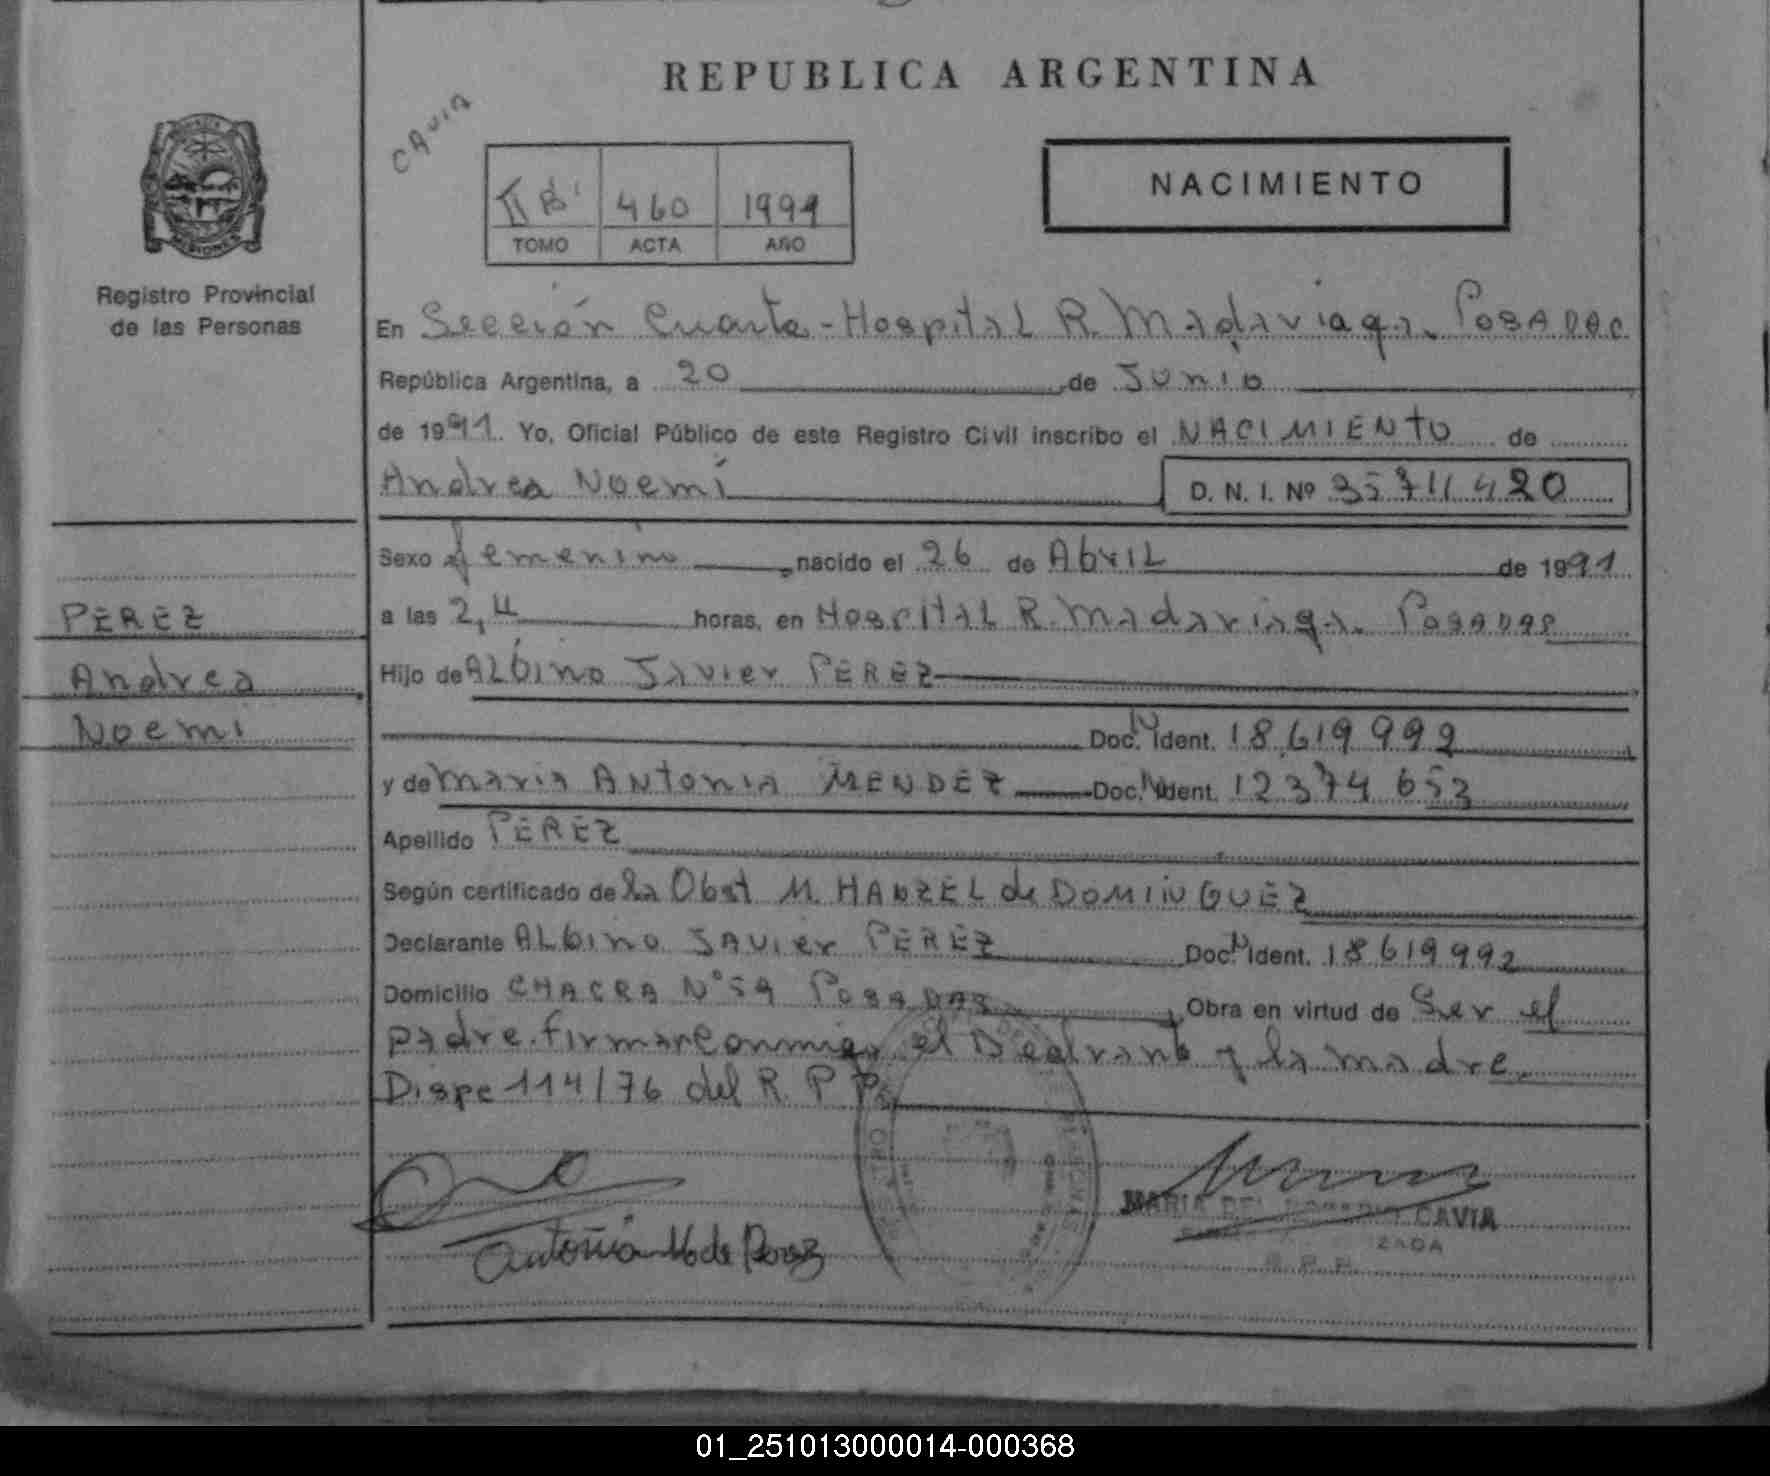 REPUBLICA ARGENTINA
CAVIA
II Bis 460 1991
TOMO ACTA AÑO
NACIMIENTO
Registro Provincial
de las Personas
En Sección Cuarta - Hospital R. Madariaga. Posadas
República Argentina, a 20 de Junio
de 1991. Yo, Oficial Público de este Registro Civil inscribo el NACIMIENTO de
Andrea Noemí D. N. I. Nº 35711420
Sexo femenino nacido el 26 de Abril de 1991
PEREZ
Andrea
Noemi
a las 2,4 horas, en Hospital R. Madariaga. Posadas
Hijo de Albino Javier PEREZ
Doc. N Ident. 18.619 992
y de Maria Antonia MENDEZ Doc. N Ident. 12374 653
Apellido PEREZ
Según certificado de la Obst M. HANZEL de DOMINGUEZ
Declarante Albino Javier PEREZ Doc. N Ident. 18619992
Domicilio CHACRA Nº 59 Posadas Obra en virtud de Ser el
padre. firman conmigo el y la madre.
Dispc 114/76 del R. P P.
Antonia M de Perez
MARIA DEL CAVIA
R. P. P.
01_251013000014-000368